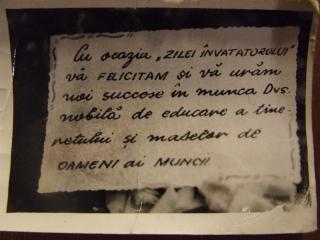 Cu ocazia „ZILEI ÎNVATATORULUI"
vă FELICITAM și vă urăm
noi succese în munca Dvs.
nobilă de educare a tine-
retului și maselor de
OAMENI ai MUNCII